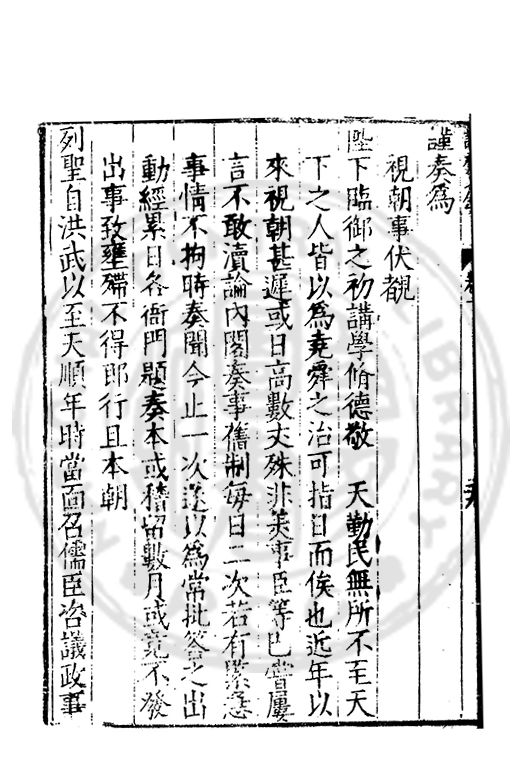 謹奏爲
視朝事伏覩
陛下臨御之初講學脩德敬 天勤民無所不至天
下之人皆以爲堯舜之治可指日而俟也近年以
來視朝甚遲或日高數丈殊非美事臣等已嘗屢
言不敢瀆論內閣奏事舊制每日二次若有緊急
事情不拘時奏聞今止一次遂以爲常批答之出
動經累日各衙門題奏本或稽留數月或竟不發
出事致壅滯不得即行且本朝
列聖自洪武以至天順年時當面召儒臣咨議政事